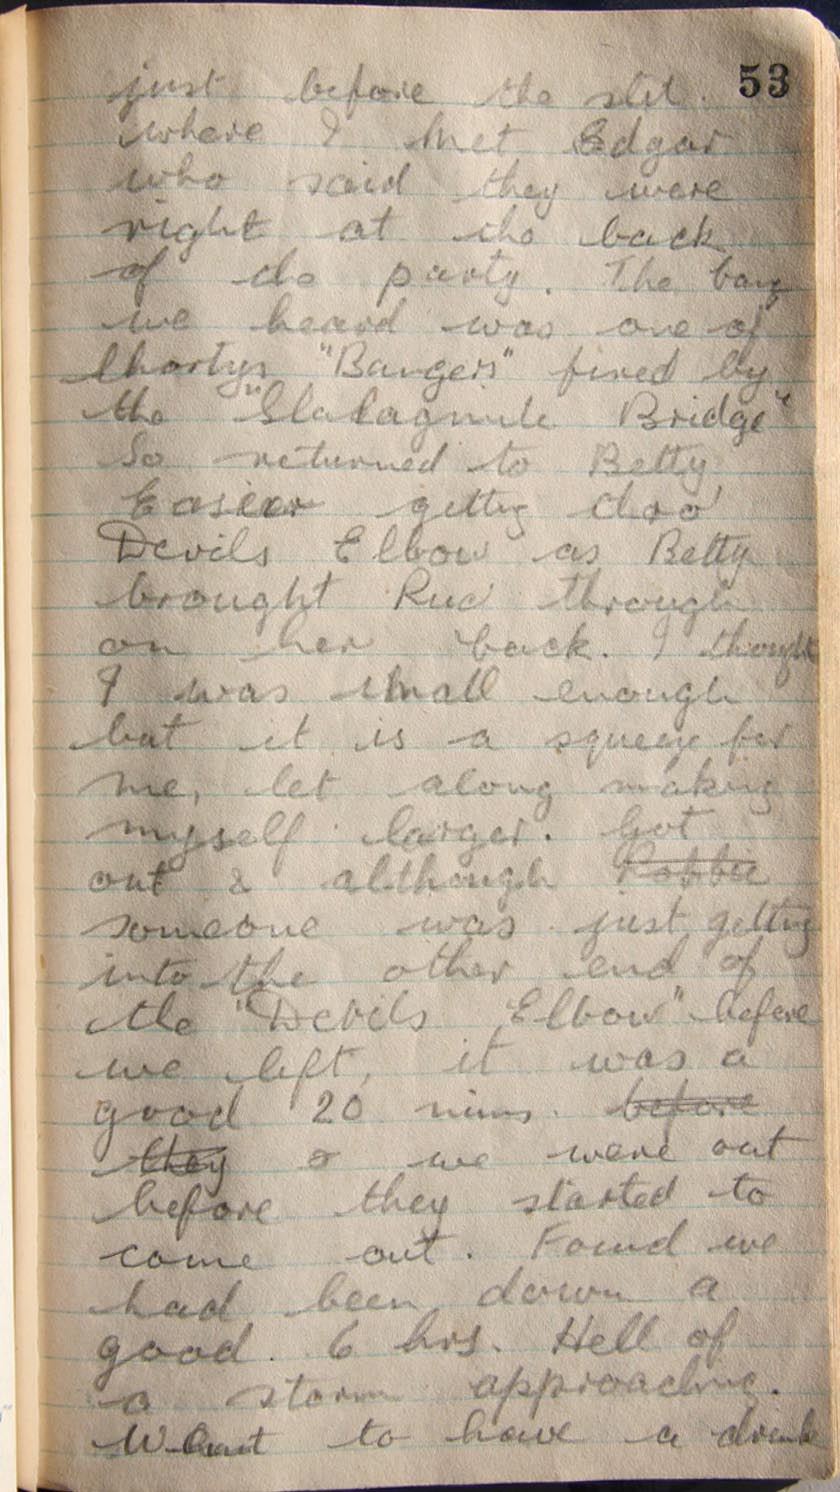 53
just before the slit.
where I met Edgar
who said they were
right at the back
of the party. The bang
we heard was one of
Shortys "Bangers" fired by
the "Stalagmite Bridge"
So returned to Betty,
Easier getting thro'
Devils Elbow as Betty
brought Ruc through
on her back. I thought
I was small enough
but it is a squeeze for
me, let along making
myself larger. Got
out & although Robbie
someone was just getting
into the other end of
the "Devils Elbow" before
we left, it was a
good 20 mins. before
they & we were out
before they started to
come out. Found we
had been down a
good. 6 hrs. Hell of
a storm approaching.
Went to have a drink